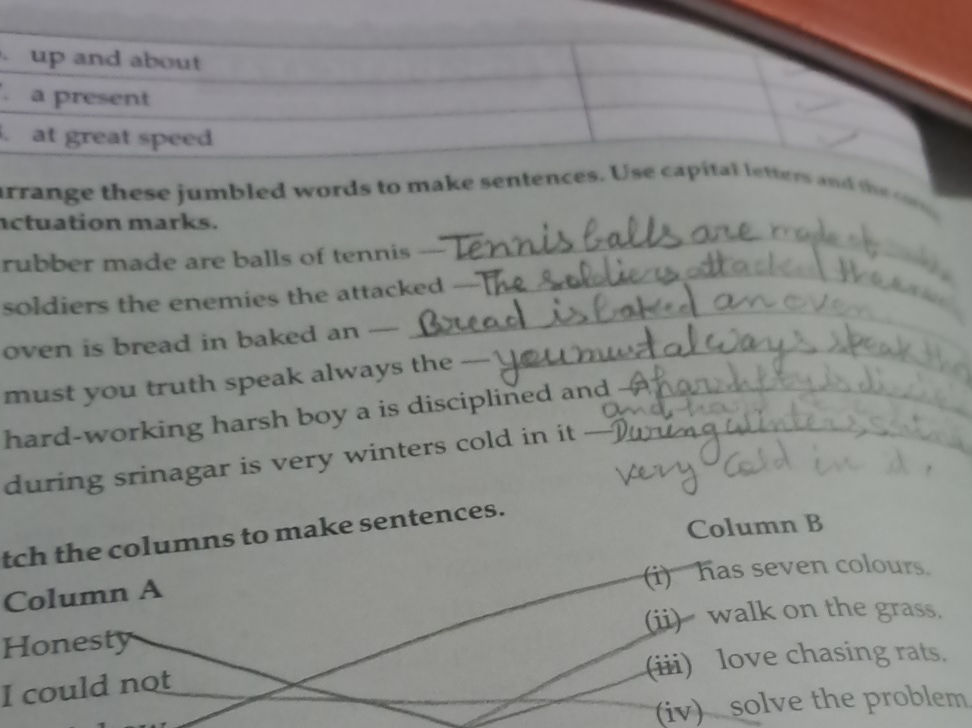 up and about
a present
at great speed
arrange these jumbled words to make sentences. Use capital letters and the
nctuation marks.
rubber made are balls of tennis — Tennis balls are made of
soldiers the enemies the attacked — The soldiers attacked the
oven is bread in baked an — Bread is baked an oven
must you truth speak always the — you must always speak the
hard-working harsh boy a is disciplined and — A harsh boy is
and
during srinagar is very winters cold in it — During winters,
very cold in it.
tch the columns to make sentences.
Column A Column B
(i) has seven colours.
Honesty (ii) walk on the grass.
I could not (iii) love chasing rats.
(iv) solve the problem